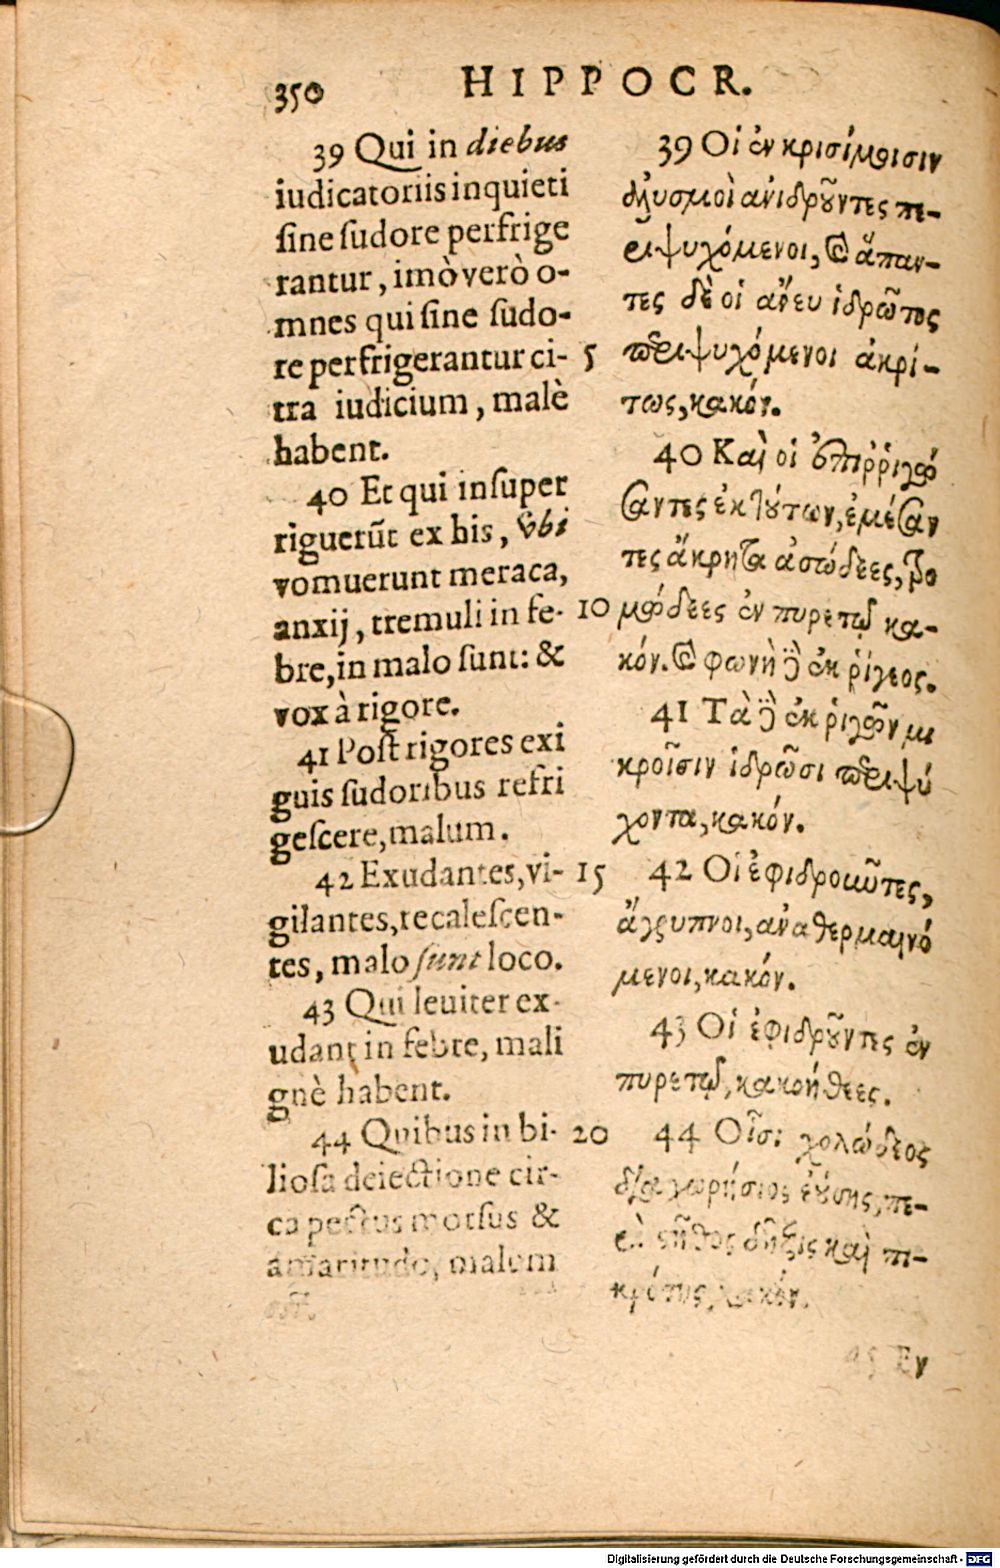 350 HIPPOCR.
39 Qui in diebus
iudicatoriis inquieti
sine sudore perfrige
rantur, imò verò o-
mnes qui sine sudo-
re perfrigerantur ci-
tra iudicium, malè
habent.
40 Et qui insuper
riguerũt ex his, vbi
vomuerunt meraca,
anxij, tremuli in fe-
bre, in malo sunt: &
vox à rigore.
41 Post rigores exi
guis sudoribus refri
gescere, malum.
42 Exudantes, vi-
gilantes, recalescen-
tes, malo sunt loco.
43 Qui leuiter ex-
udant in febre, mali
gnè habent.
44 Quibus in bi-
liosa deiectione cir-
ca pectus morsus &
amaritudo, malum
est.
39 Οἱ ἐν κρισίμοισιν
ἀλυσμοὶ ἀνιδροῦντες πε-
ριψυχόμενοι, καὶ ἅπαν-
τες δὲ οἱ ἄνευ ἱδρῶτος
5 περιψυχόμενοι ἀκρί-
τως, κακόν.
40 Καὶ οἱ ἐπιῤῥιγώ
σαντες ἐκ τούτων, ἐμέσαν
τες ἄκρητα ἀσώδεες, τρο
10 μώδεες ἐν πυρετῷ κα-
κόν. καὶ φωνὴ δὲ ἐκ ῥίγεος.
41 Τὰ δὲ ἐκ ῥιγῶν μι
κροῖσιν ἱδρῶσι περιψύ
χοντα, κακόν.
15 42 Οἱ ἐφιδροῦντες,
ἄγρυπνοι, ἀναθερμαινό
μενοι, κακόν.
43 Οἱ ἐφιδροῦντες ἐν
πυρετῷ, κακοήθεες.
20 44 Οἷσι χολώδεος
διαχωρήσιος ἐούσης, πε-
ρὶ στῆθος δῆξις καὶ πι-
κρότης, κακόν.
45 Εν
Digitalisierung gefördert durch die Deutsche Forschungsgemeinschaft - DFG